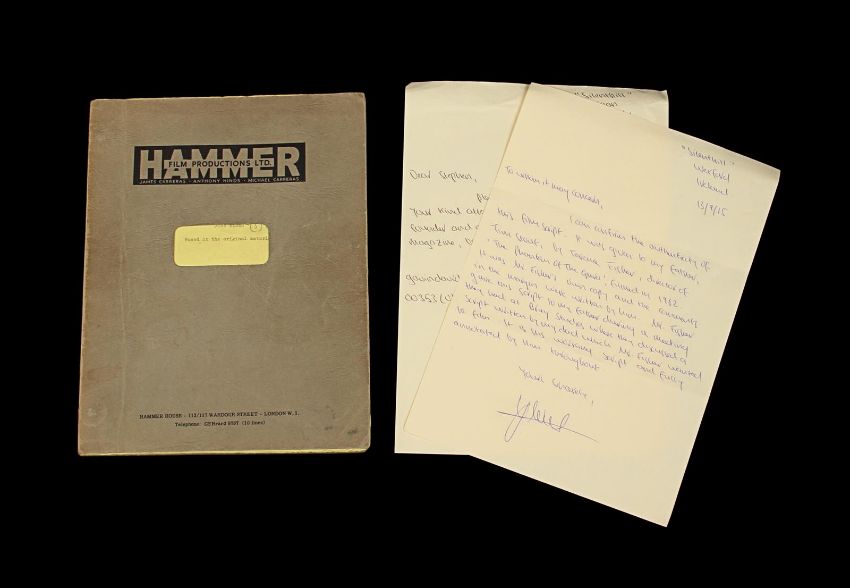 HAMMER
FILM PRODUCTIONS LTD.
JAMES CARRERAS · ANTHONY HINDS · MICHAEL CARRERAS
Based on the original materi
HAMMER HOUSE - 113/117 WARDOUR STREET - LONDON W.1.
Telephone: GERrard 9787 (10 lines)
"Silenthill"
Dear Stephen,
Your kind
founder and
magazine,
00353
"Silenthill"
Wexford
Ireland
13/7/15
To whom it may concern,
I can confirm the authenticity of
this film script. It was given to my father,
by Terence Fisher, director of
'The Phantom of the Opera', filmed in 1962
It was Mr Fisher's own copy and the comments
in the margin were written by him. Mr Fisher
gave this script to my father during a meeting
they had at Bray Studios where they discussed a
script written by my dad which Mr Fisher wanted
to film. It is his working script and fully
annotated by him throughout
Yours sincerely,